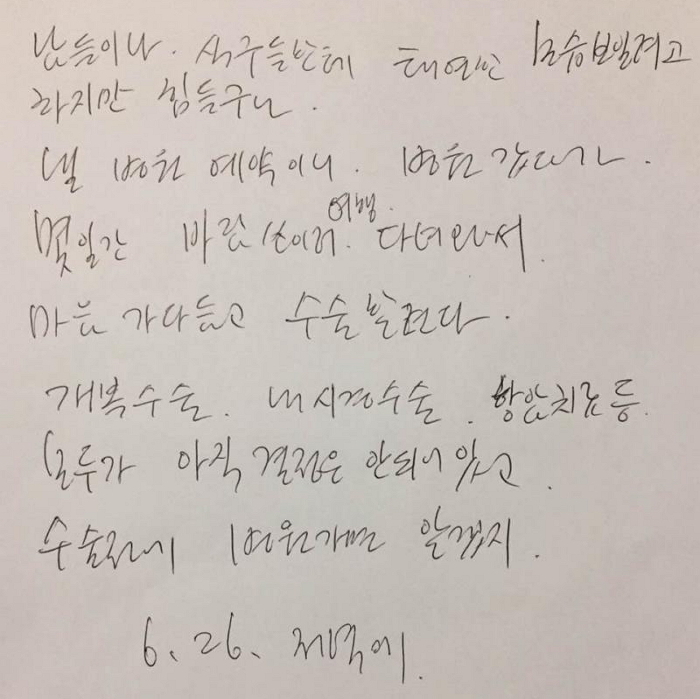 남들이나. 식구들한테 태연한 모습보일려고
하지만 힘들구나.
낼 병원 예약이니. 병원 갔다가.
몇일간 바람쏘이러. 여행. 다녀와서.
마음 가다듬고 수술할련다.
개복수술. 내시경수술. 항암치료등.
모두가 아직 결정은 안되어 있고.
수술전에 병원가면 알겠지.
6. 26. 저녁에.